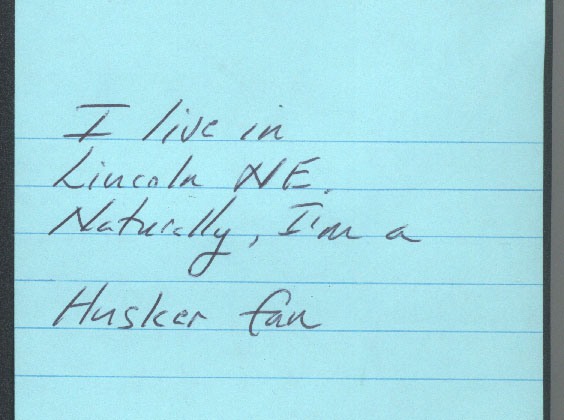 I live in
Lincoln NE.
Naturally, I'm a
Husker fan